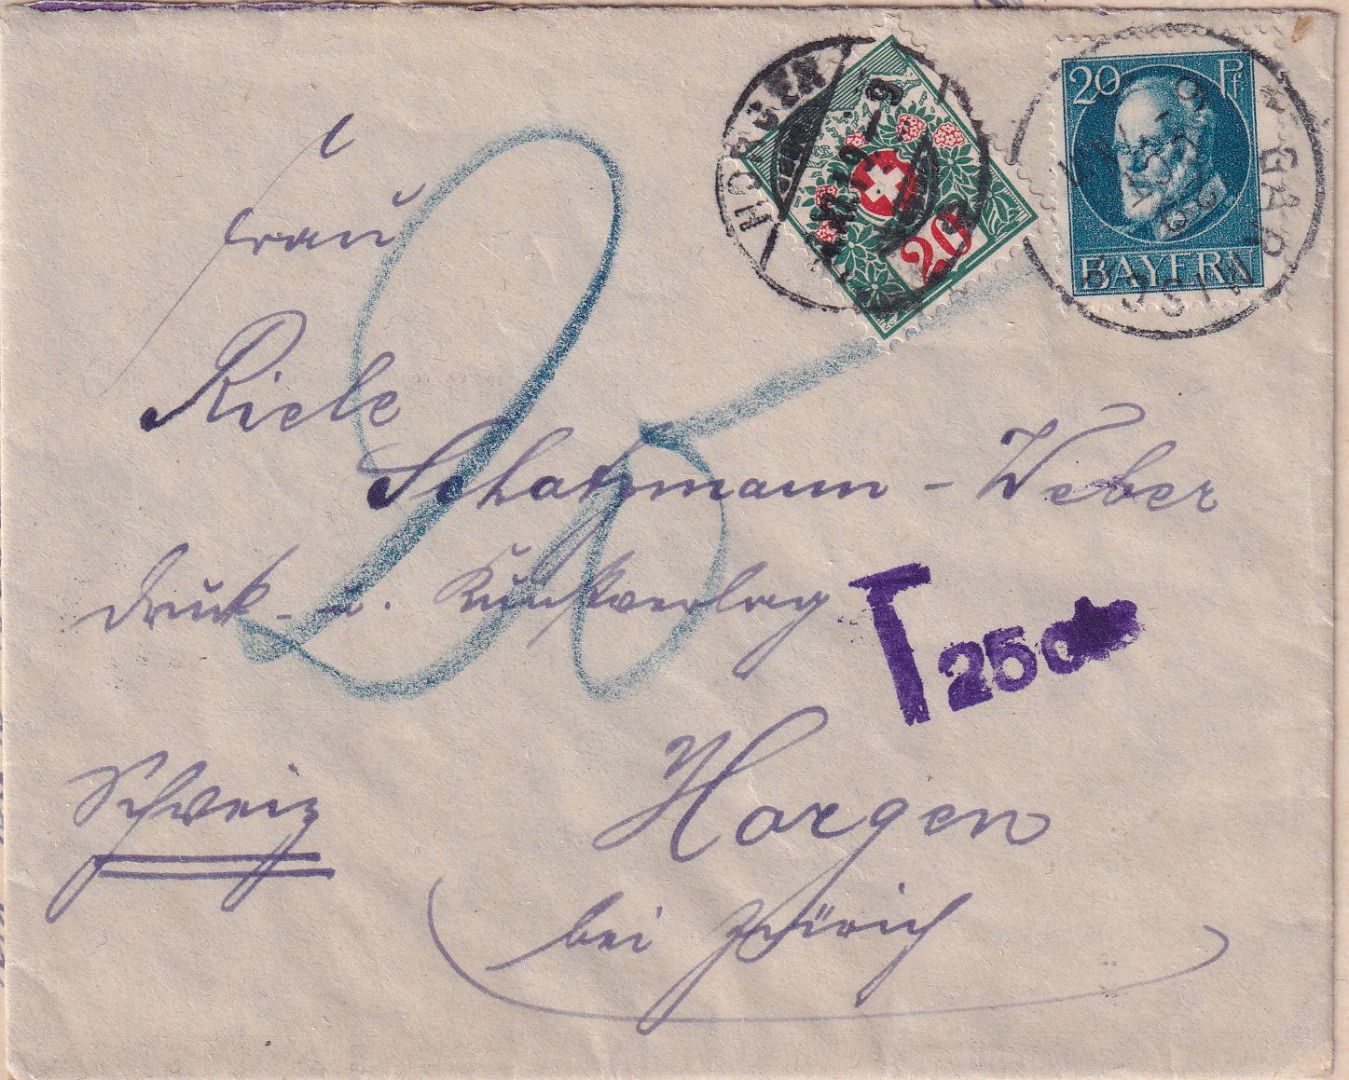 HORGEN
20
20 Pf
BAYERN
GARMISCH
Frau
Riele
Schatzmann - Weber
Druck- u. Kunstverlag
25
T 25 cts
Horgen
Schweiz
bei Zürich